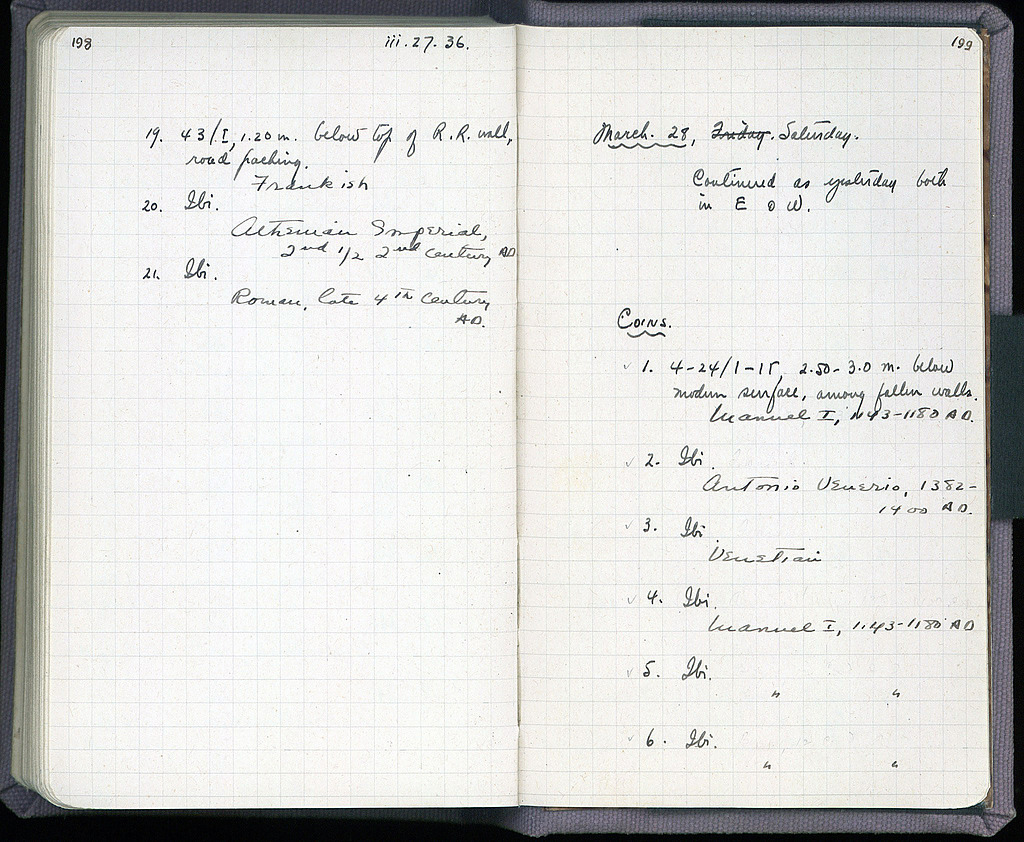 198
iii.27.36.
19. 43/I, 1.20 m. below top of R.R. wall,
road packing.
Frankish
20. Ibi.
Athenian Imperial,
2nd 1/2 2nd century AD
21. Ibi.
Roman, late 4th century
AD.
199
March. 28, Friday. Saturday.
Continued as yesterday both
in E & W.
Coins.
✓ 1. 4-24/1-IΓ, 2.50-3.0 m. below
modern surface, among fallen walls.
Manuel I, 1143-1180 AD.
✓ 2. Ibi.
Antonio Venerio, 1382-
1400 AD.
✓ 3. Ibi.
Venetian
✓ 4. Ibi.
Manuel I, 1143-1180 AD
✓ 5. Ibi.
" "
✓ 6. Ibi.
" "